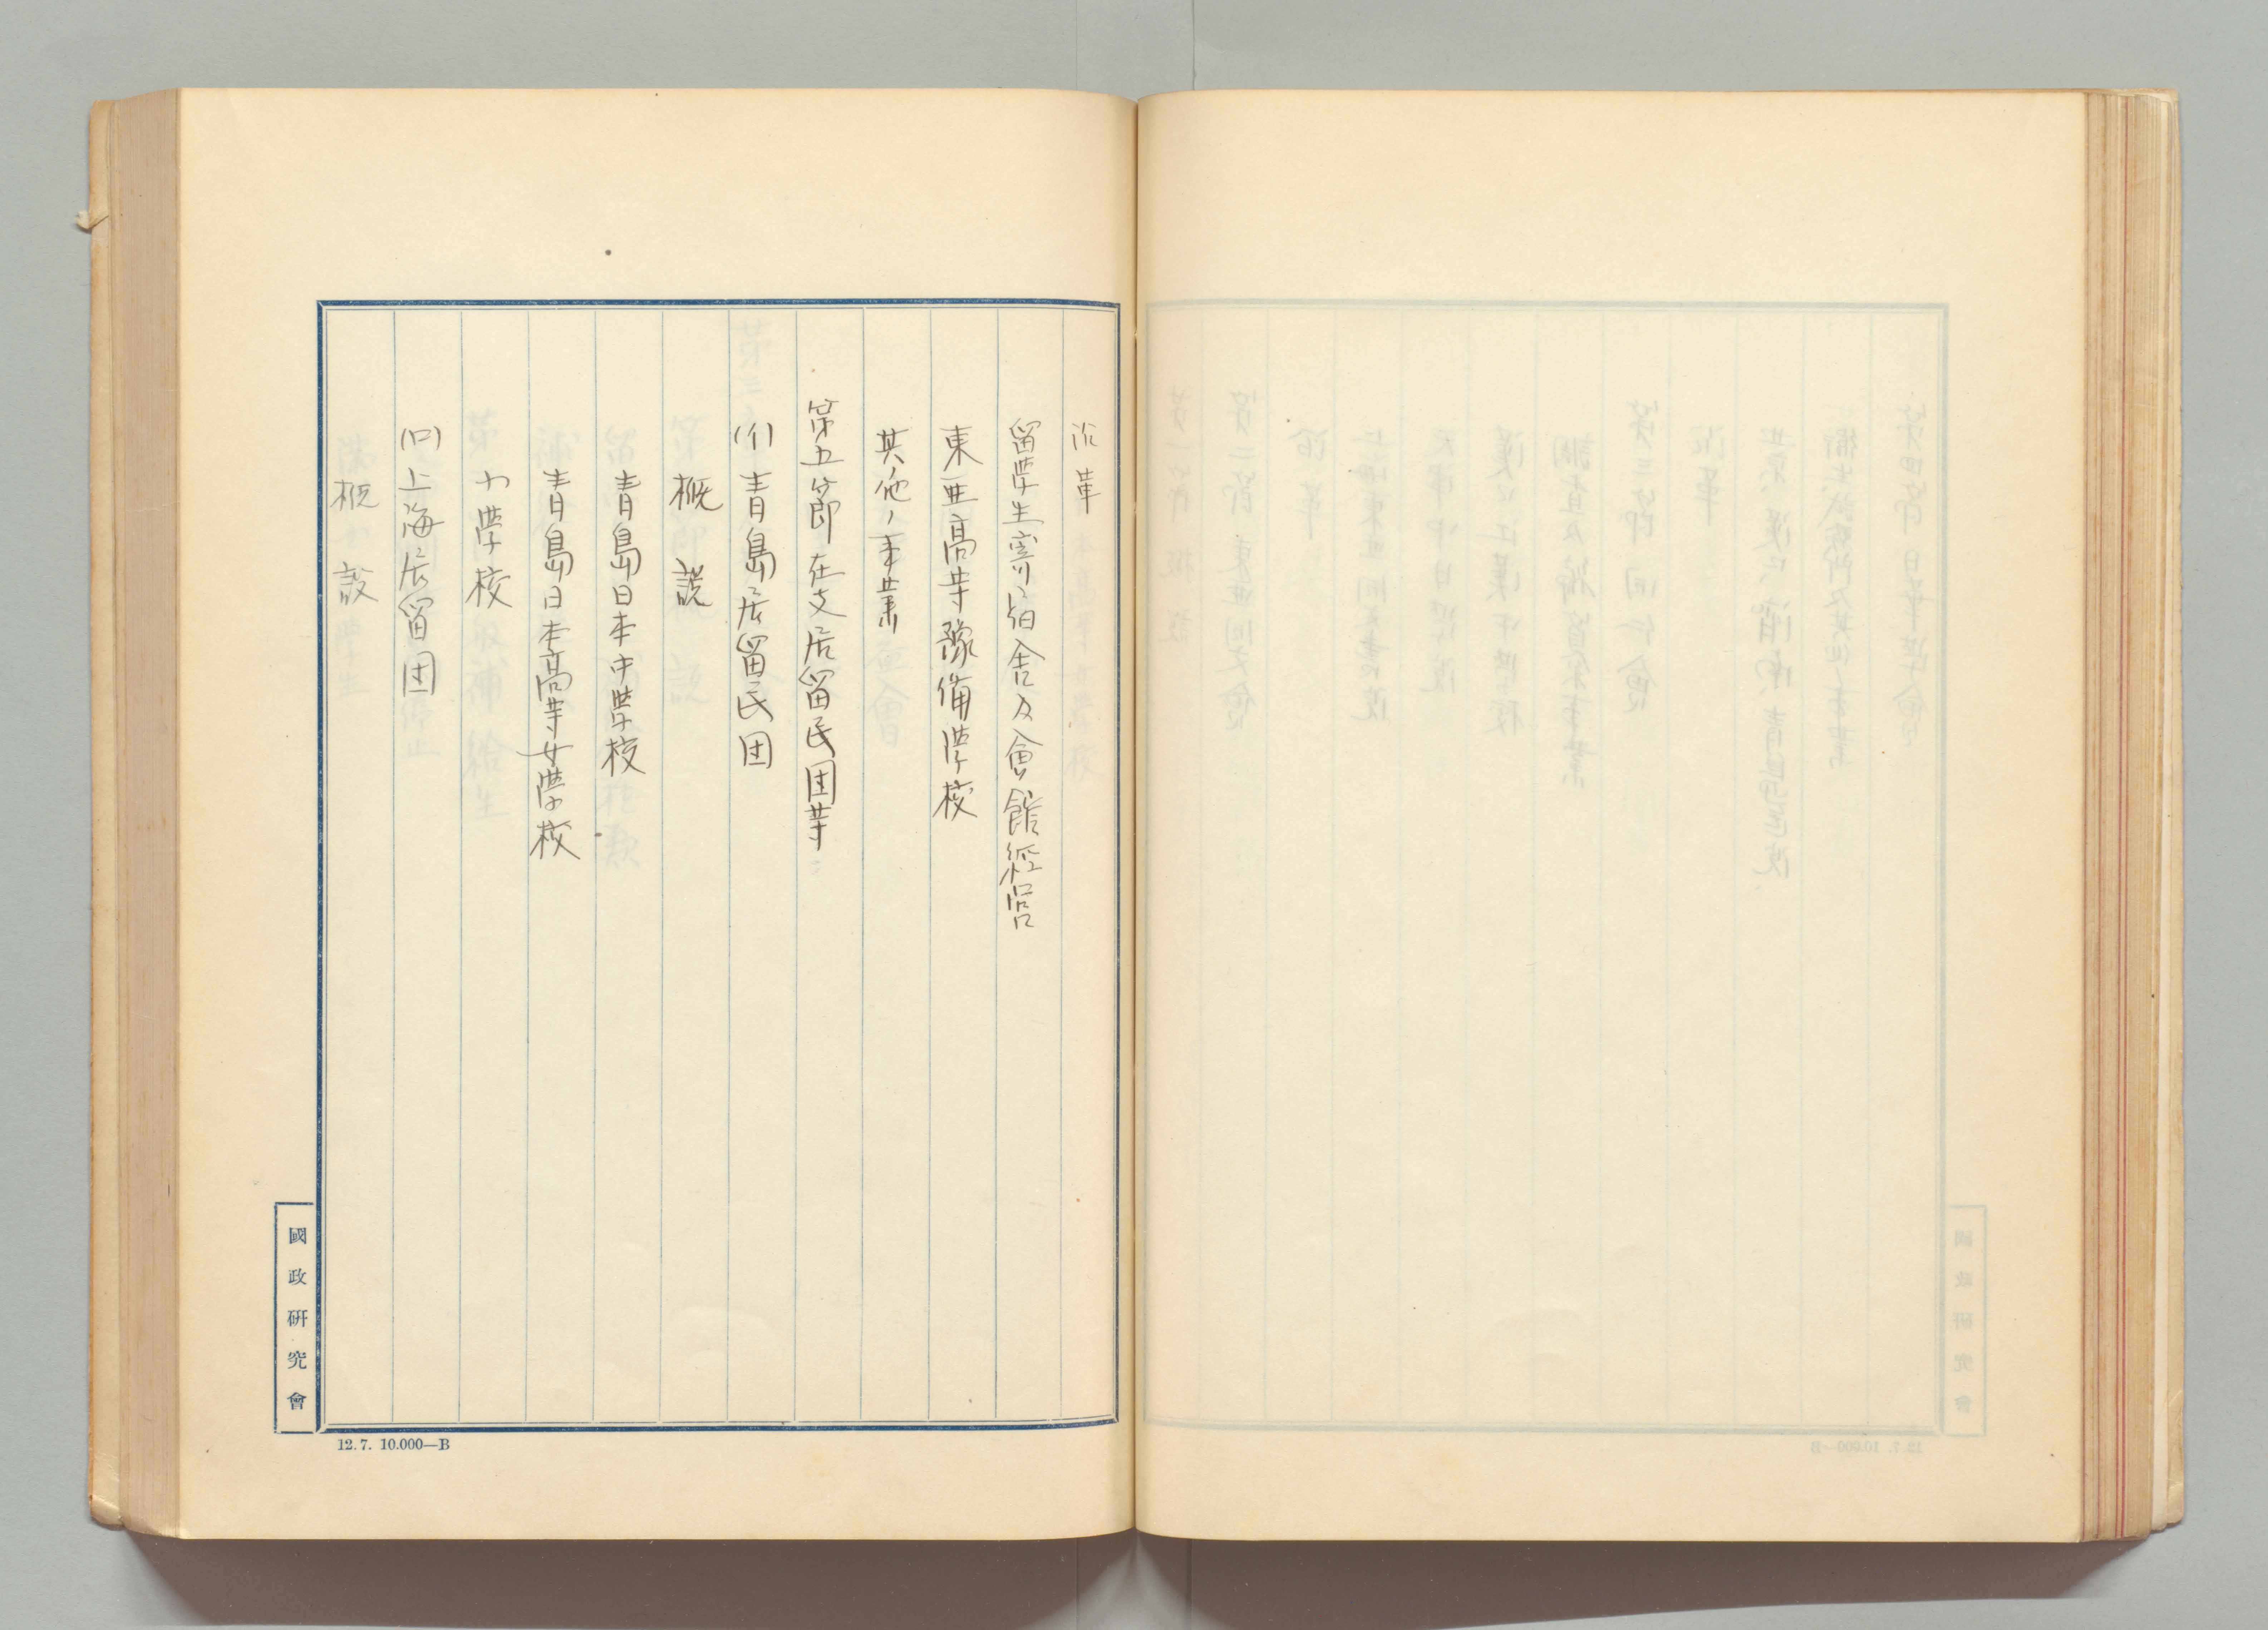 沿革
留學生寄宿舍及會館經営
東亜高等豫備學校
其ノ他ノ事業
第五節 在支居留民団等
(イ)青島居留民団
概説
青島日本中學校
青島日本高等女學校
小學校
(ロ)上海居留団
概説
國政研究會
12.7. 10.000—B